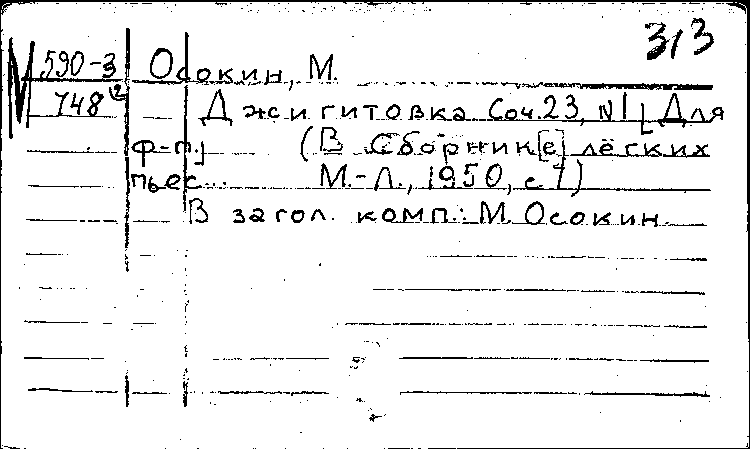 313
М 590-3 Осокин, М.
748 (2 Джигитовка Соч. 23, №1 [Для
ф-п.] (В Сборник[е] лёгких
пьес... М.-Л., 1950, с 7)
В загол. комп.: М. Осокин.